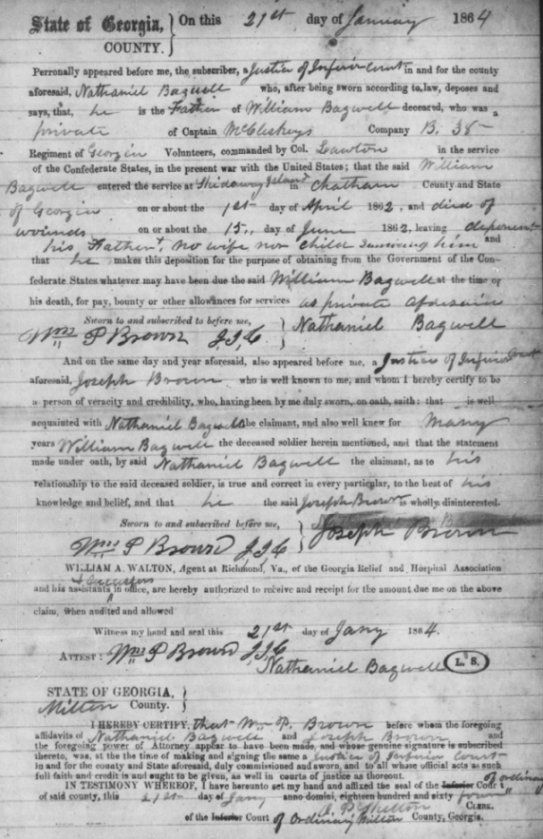 State of Georgia, } On this 21st day of January 1864
COUNTY.
Personally appeared before me, the subscriber, a Justice of Inferior Court in and for the county
aforesaid, Nathaniel Bagwell who, after being sworn according to law, deposes and
says, that, he is the Father of William Bagwell deceased, who was a
private of Captain McCluskeys Company B. 38
Regiment of Georgia Volunteers, commanded by Col. Lawton in the service
of the Confederate States, in the present war with the United States; that the said William
Bagwell entered the service at Skidaway Island in Chatham County and State
of Georgia on or about the 1st day of April 1862, and died of
wounds on or about the 15 day of June 1862, leaving deponent
his Father, no wife nor child surviving him and
that he makes this deposition for the purpose of obtaining from the Government of the Con-
federate States whatever may have been due the said William Bagwell at the time of
his death, for pay, bounty or other allowances for services as private aforesaid
Sworn to and subscribed to before me, } Nathaniel Bagwell
Wm P Brown J.I.C
And on the same day and year aforesaid, also appeared before me, a Justice of Inferior Court
aforesaid, Joseph Brown who is well known to me, and whom I hereby certify to be
a person of veracity and credibility, who, having been by me duly sworn, on oath, saith: that is well
acquainted with Nathaniel Bagwell the claimant, and also well knew for many
years William Bagwell the deceased soldier herein mentioned, and that the statement
made under oath, by said Nathaniel Bagwell the claimant, as to his
relationship to the said deceased soldier, is true and correct in every particular, to the best of his
knowledge and belief, and that he the said Joseph Brown is wholly disinterested.
Sworn to and subscribed before me, } Joseph Brown
Wm P Brown J.I.C
WILLIAM A. WALTON, Agent at Richmond, Va., of the Georgia Relief and Hospital Association
& Successors
and his assistants in office, are hereby authorized to receive and receipt for the amount due me on the above
claim, when audited and allowed
Witness my hand and seal this 21st day of Jany 1864.
ATTEST: Wm P Brown J.I.C
Nathaniel Bagwell L. S.
STATE OF GEORGIA, }
Milton County.
I HEREBY CERTIFY, that Wm P. Brown before whom the foregoing
affidavits of Nathaniel Bagwell and Joseph Brown and
the foregoing power of Attorney appear to have been made, and whose genuine signature is subscribed
thereto, was, at the time of making and signing the same a Justice of Inferior Court
in and for the county and State aforesaid, duly commissioned and sworn, and to all whose official acts as such
full faith and credit is and ought to be given, as well in courts of justice as thereout.
IN TESTIMONY WHEREOF, I have hereunto set my hand and affixed the seal of the Inferior Court of ordinary
of said county, this 21st day of Jany anno domini, eighteen hundred and sixty four
CLERK.
of the Inferior Court of Ordinary Milton County, Georgia.